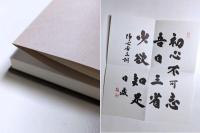 初心不可忘
吾日三省
少欲知足